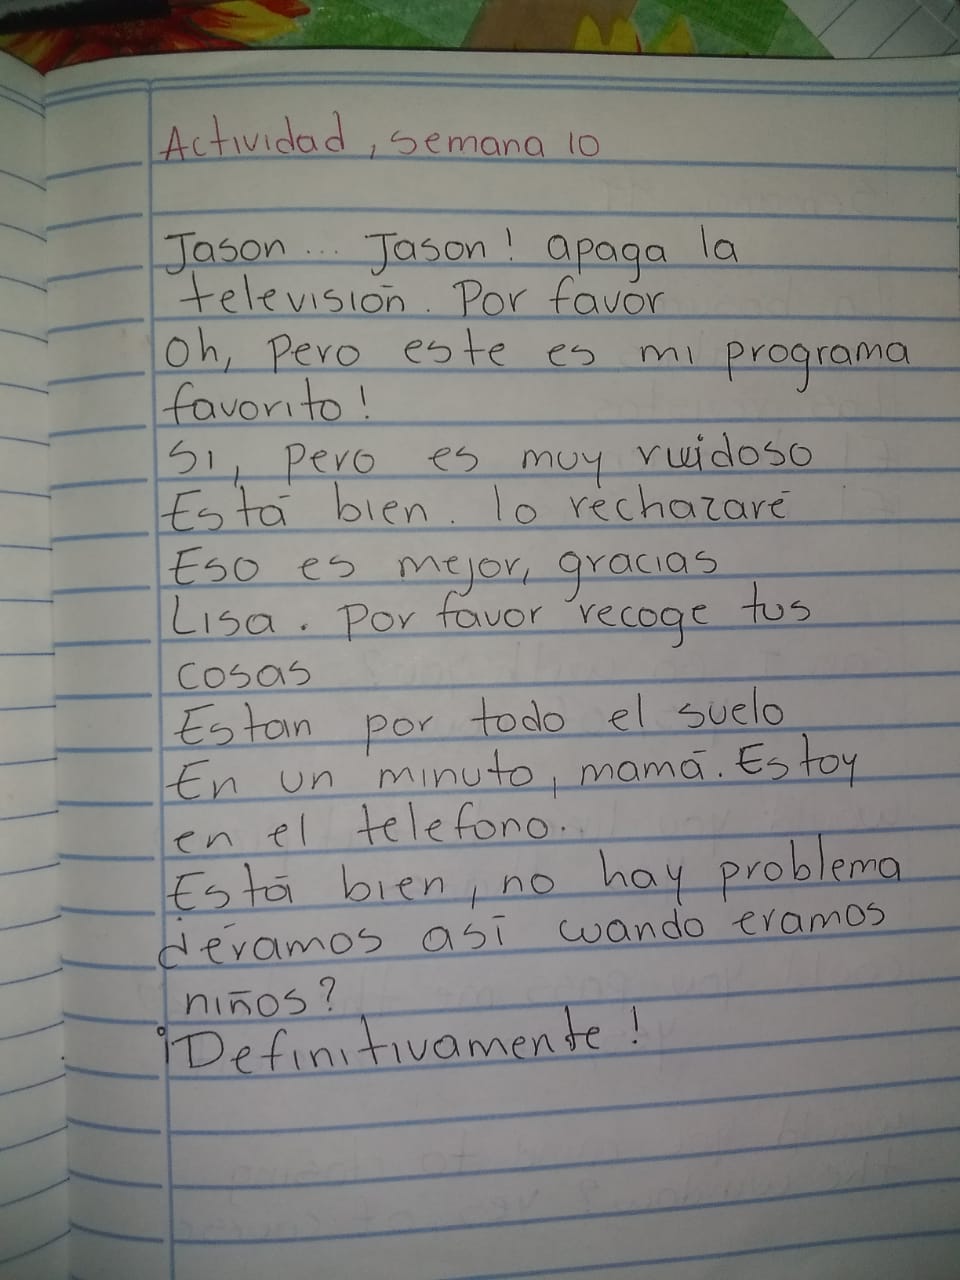 Actividad, semana 10
Jason ... Jason! apaga la
televisión. Por favor
Oh, pero este es mi programa
favorito!
Si, pero es muy ruidoso
Está bien. lo rechazaré
Eso es mejor, gracias
Lisa. Por favor recoge tus
cosas
Estan por todo el suelo
En un minuto, mamá. Estoy
en el telefono.
Está bien, no hay problema
¿éramos así cuando eramos
niños?
¡Definitivamente!